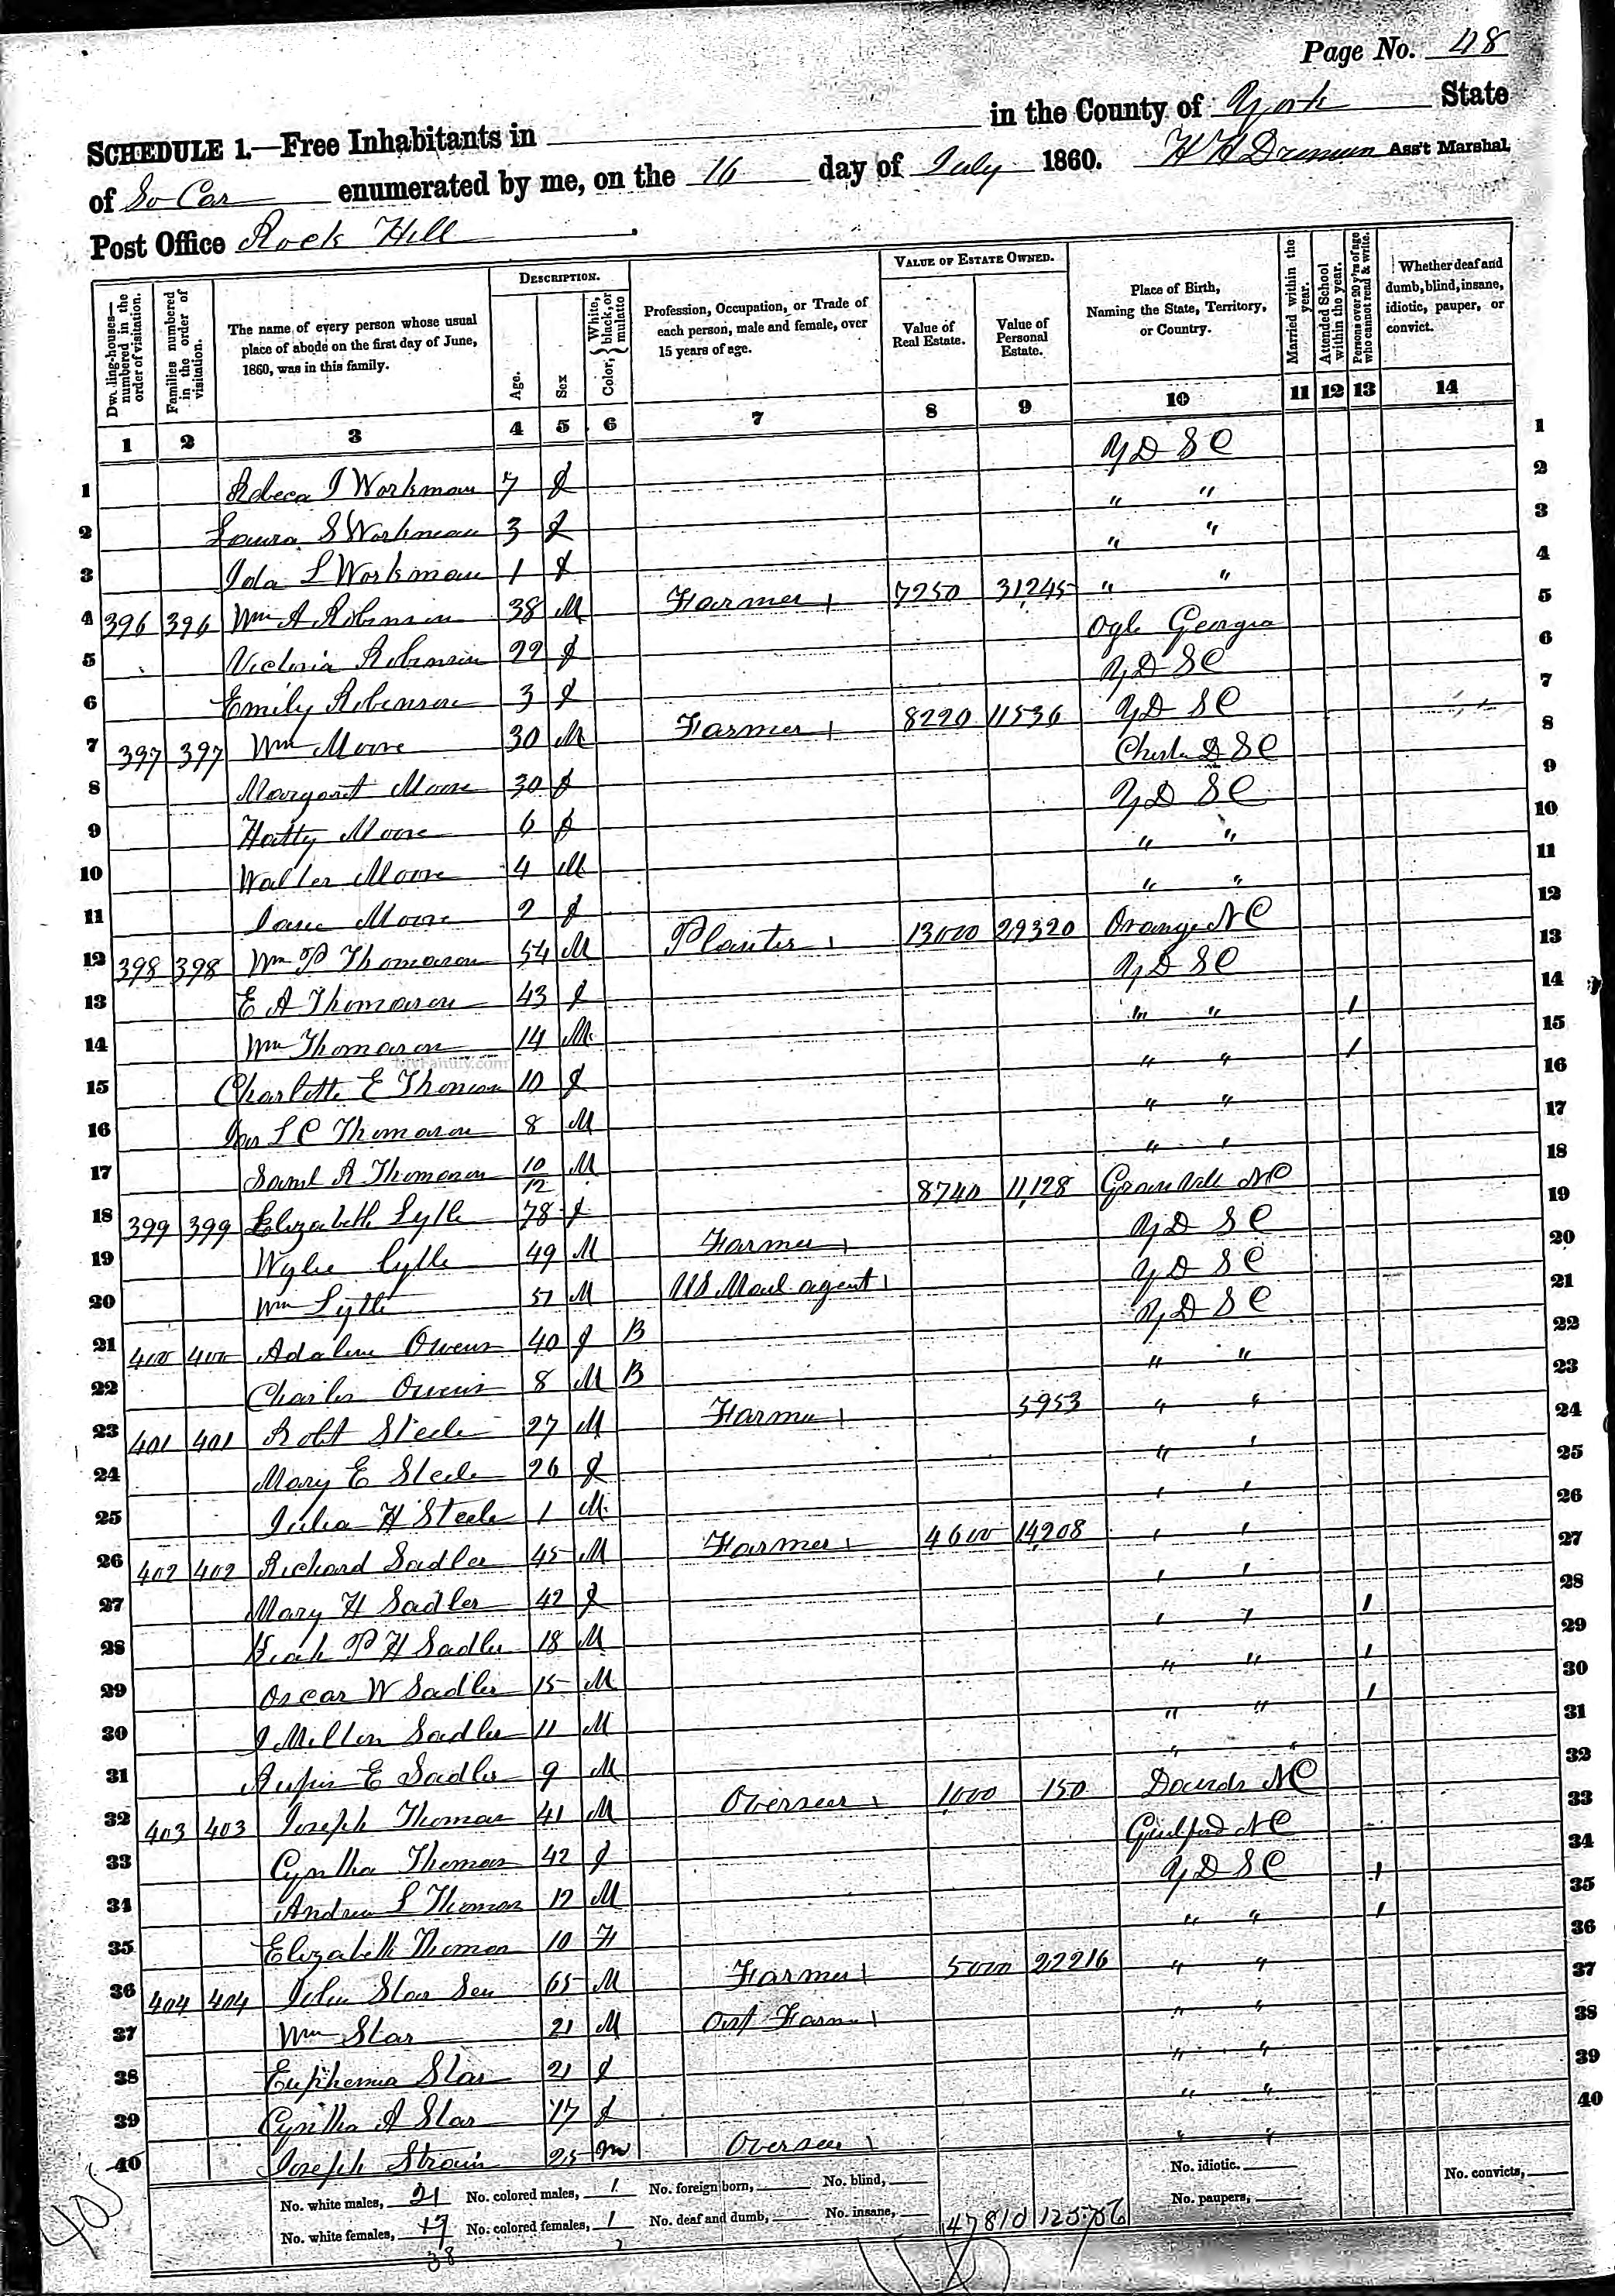 Page No. 48
SCHEDULE 1.—Free Inhabitants in in the County of York State
of So Car enumerated by me, on the 16 day of July 1860. Ass't Marshal,
Post Office Rock Hill
DESCRIPTION. VALUE OF ESTATE OWNED.
Dwelling-houses—numbered in the order of visitation. Families numbered in the order of visitation. The name of every person whose usual place of abode on the first day of June, 1860, was in this family. Age. Sex Color, White, black, or mulatto Profession, Occupation, or Trade of each person, male and female, over 15 years of age. Value of Real Estate. Value of Personal Estate. Place of Birth, Naming the State, Territory, or Country. Married within the year. Attended School within the year. Persons over 20 y'rs of age who cannot read & write. Whether deaf and dumb, blind, insane, idiotic, pauper, or convict.
1 2 3 4 5 6 7 8 9 10 11 12 13 14
1 Rebeca J Workman 7 f Y D S C 1
2 Laura S Workman 3 f " " 2
3 Ida L Workman 1 f " " 3
4 396 396 Wm A Robinson 38 M Farmer 7250 31245 " " 4
5 Victoria Robinson 22 f Ogle Georgia 5
6 Emily Robinson 3 f Y D S C 6
7 397 397 Wm Moore 30 M Farmer 8220 11536 Y D S C 7
8 Margaret Moore 30 f Chester D S C 8
9 Hatty Moore 6 f Y D S C 9
10 Walter Moore 4 M " " 10
11 Moore 2 f " " 11
12 398 398 Wm P Thomason 54 M Planter 13000 29320 Orange N C 12
13 E A Thomason 43 f Y D S C 13
14 Wm Thomason 14 M " " 1 14
15 Charlotte E Thomason 10 f " " 1 15
16 L C Thomason 8 M " " 16
17 Saml R Thomason 10/12 M " " 17
18 399 399 Elizabeth Lytle 78 f 8740 11,128 Granville N C 18
19 Wylie Lytle 49 M Farmer Y D S C 19
20 Wm Lytle 51 M U S Mail agent Y D S C 20
21 400 400 Adaline Owens 40 f B Y D S C 21
22 Charles Owens 8 M B " " 22
23 401 401 Robt Steele 27 M Farmer 5953 " " 23
24 Mary E Steele 26 f " " 24
25 H Steele 1 M " " 25
26 402 402 Richard Sadler 45 M Farmer 4600 14,208 " " 26
27 Mary H Sadler 42 f " " 27
28 P H Sadler 18 M " " 1 28
29 Oscar W Sadler 15 M " " 1 29
30 J Milton Sadler 11 M " " 1 30
31 Rufus E Sadler 9 M " " 31
32 403 403 Joseph Thomas 41 M Overseer 1,000 150 N C 32
33 Cyntha Thomas 42 f Guilford N C 33
34 Andrew L Thomas 12 M Y D S C 1 34
35 Elizabeth Thomas 10 F " " 1 35
36 404 404 John Star Sen 65 M Farmer 5000 22216 " " 36
37 Wm Star 21 M Farmer " " 37
38 Euphemia Star 21 f " " 38
39 Cyntha A Star 17 f " " 39
40 Joseph Strain 25 m Overseer " " 40
No. white males, 21 No. colored males, 1 No. foreign born, No. blind, No. idiotic. No. convicts,
No. white females, 17 No. colored females, 1 No. deaf and dumb, No. insane, 47810 125756 No. paupers,
38 2
405
MyFamily.com